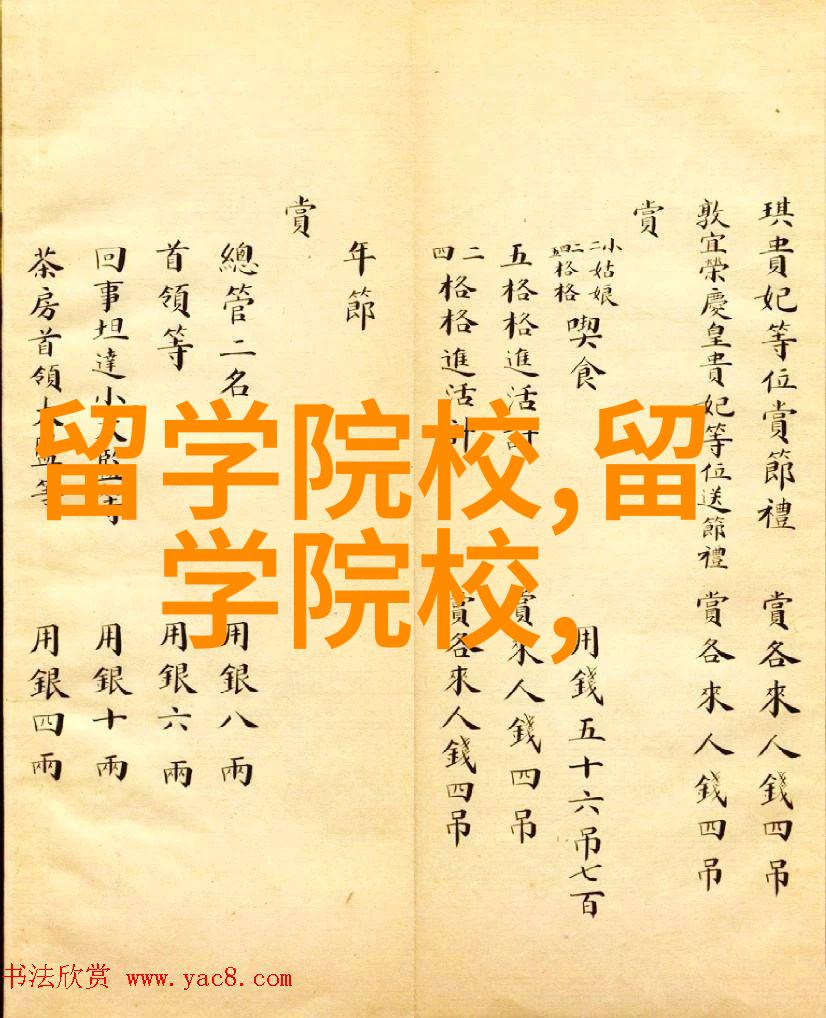 琪貴妃等位賞節禮 賞各來人錢四吊
敦宜榮慶皇貴妃等位送節禮 賞各來人錢四吊
賞
小姑娘
二二格格
四格格
喫食 用錢五十六吊七百
五格格進活計 賞來人錢四吊
二
四
格格進活計 賞各來人錢四吊
年節
賞
總管二名 用銀八兩
首領等 用銀六兩
回事坦達小太監等 用銀十兩
茶房首領太監等 用銀四兩
留学院校,留
学院校,
书法欣赏 www.yac8.com